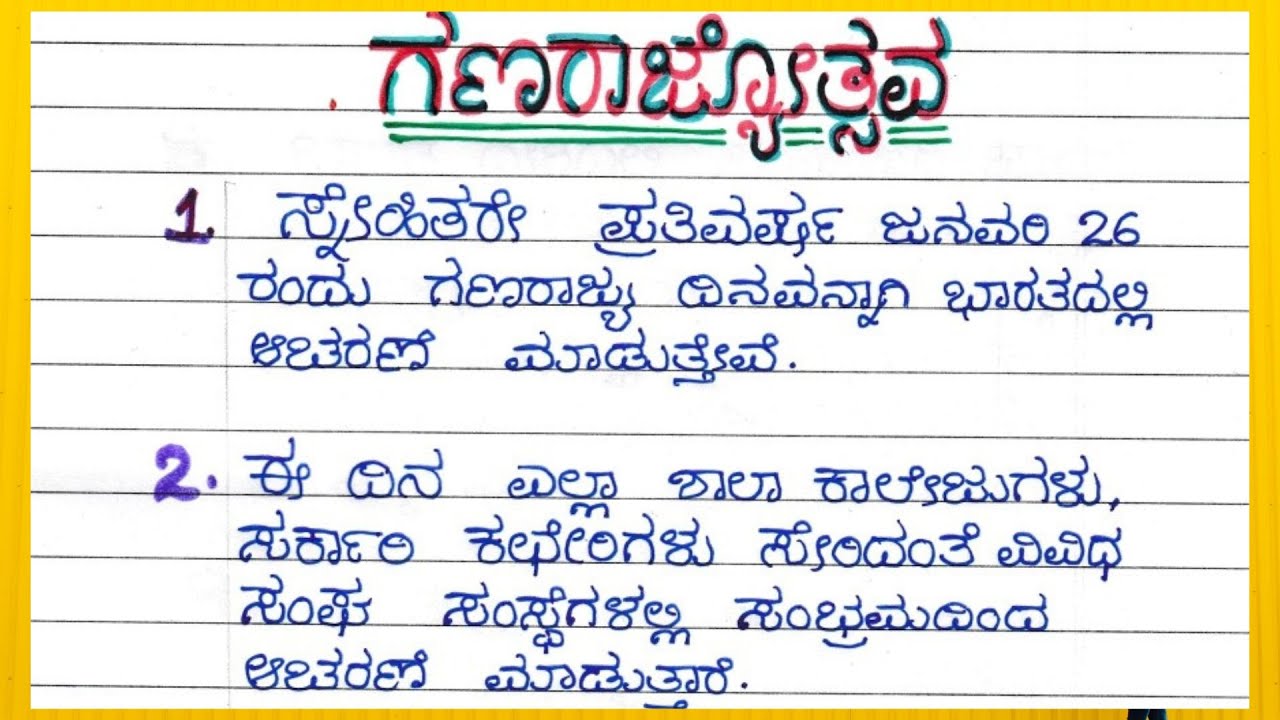 ಗಣರಾಜ್ಯೋತ್ಸವ
1. ಸ್ನೇಹಿತರೇ ಪ್ರತಿವರ್ಷ ಜನವರಿ 26
ರಂದು ಗಣರಾಜ್ಯ ದಿನವನ್ನಾಗಿ ಭಾರತದಲ್ಲಿ
ಆಚರಣೆ ಮಾಡುತ್ತೇವೆ.
2. ಈ ದಿನ ಎಲ್ಲಾ ಶಾಲಾ ಕಾಲೇಜುಗಳು,
ಸರ್ಕಾರಿ ಕಛೇರಿಗಳು ಸೇರಿದಂತೆ ವಿವಿಧ
ಸಂಘ ಸಂಸ್ಥೆಗಳಲ್ಲಿ ಸಂಭ್ರಮದಿಂದ
ಆಚರಣೆ ಮಾಡುತ್ತಾರೆ.